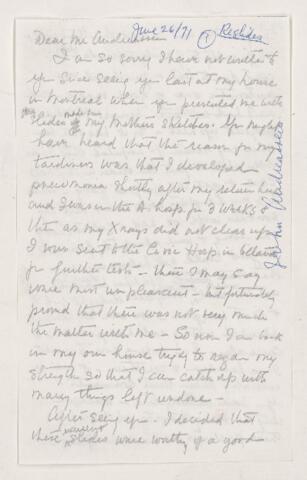 June 26/71 ① Resides
Dear Mr Andreassen
I am so sorry I have not written to
you since seeing you last at my house
in Montreal when you presented me with
slides made from my Mothers sketches. You might
have heard that the reason for my
tardiness was that I developed
pneumonia shortly after my return here
and I was in the A. Hosp. for 3 weeks &
then as my Xrays did not clear up
I was sent to the Civic Hosp. in Ottawa
for further tests - these I may say
were most unpleasant - but fortunately
proved that there was not very much
the matter with me - So now I am back
in my own house trying to regain my
strength so that I can catch up with
many things left undone -
After seeing you - I decided that
these slides were worthy of a good
John Andreassen